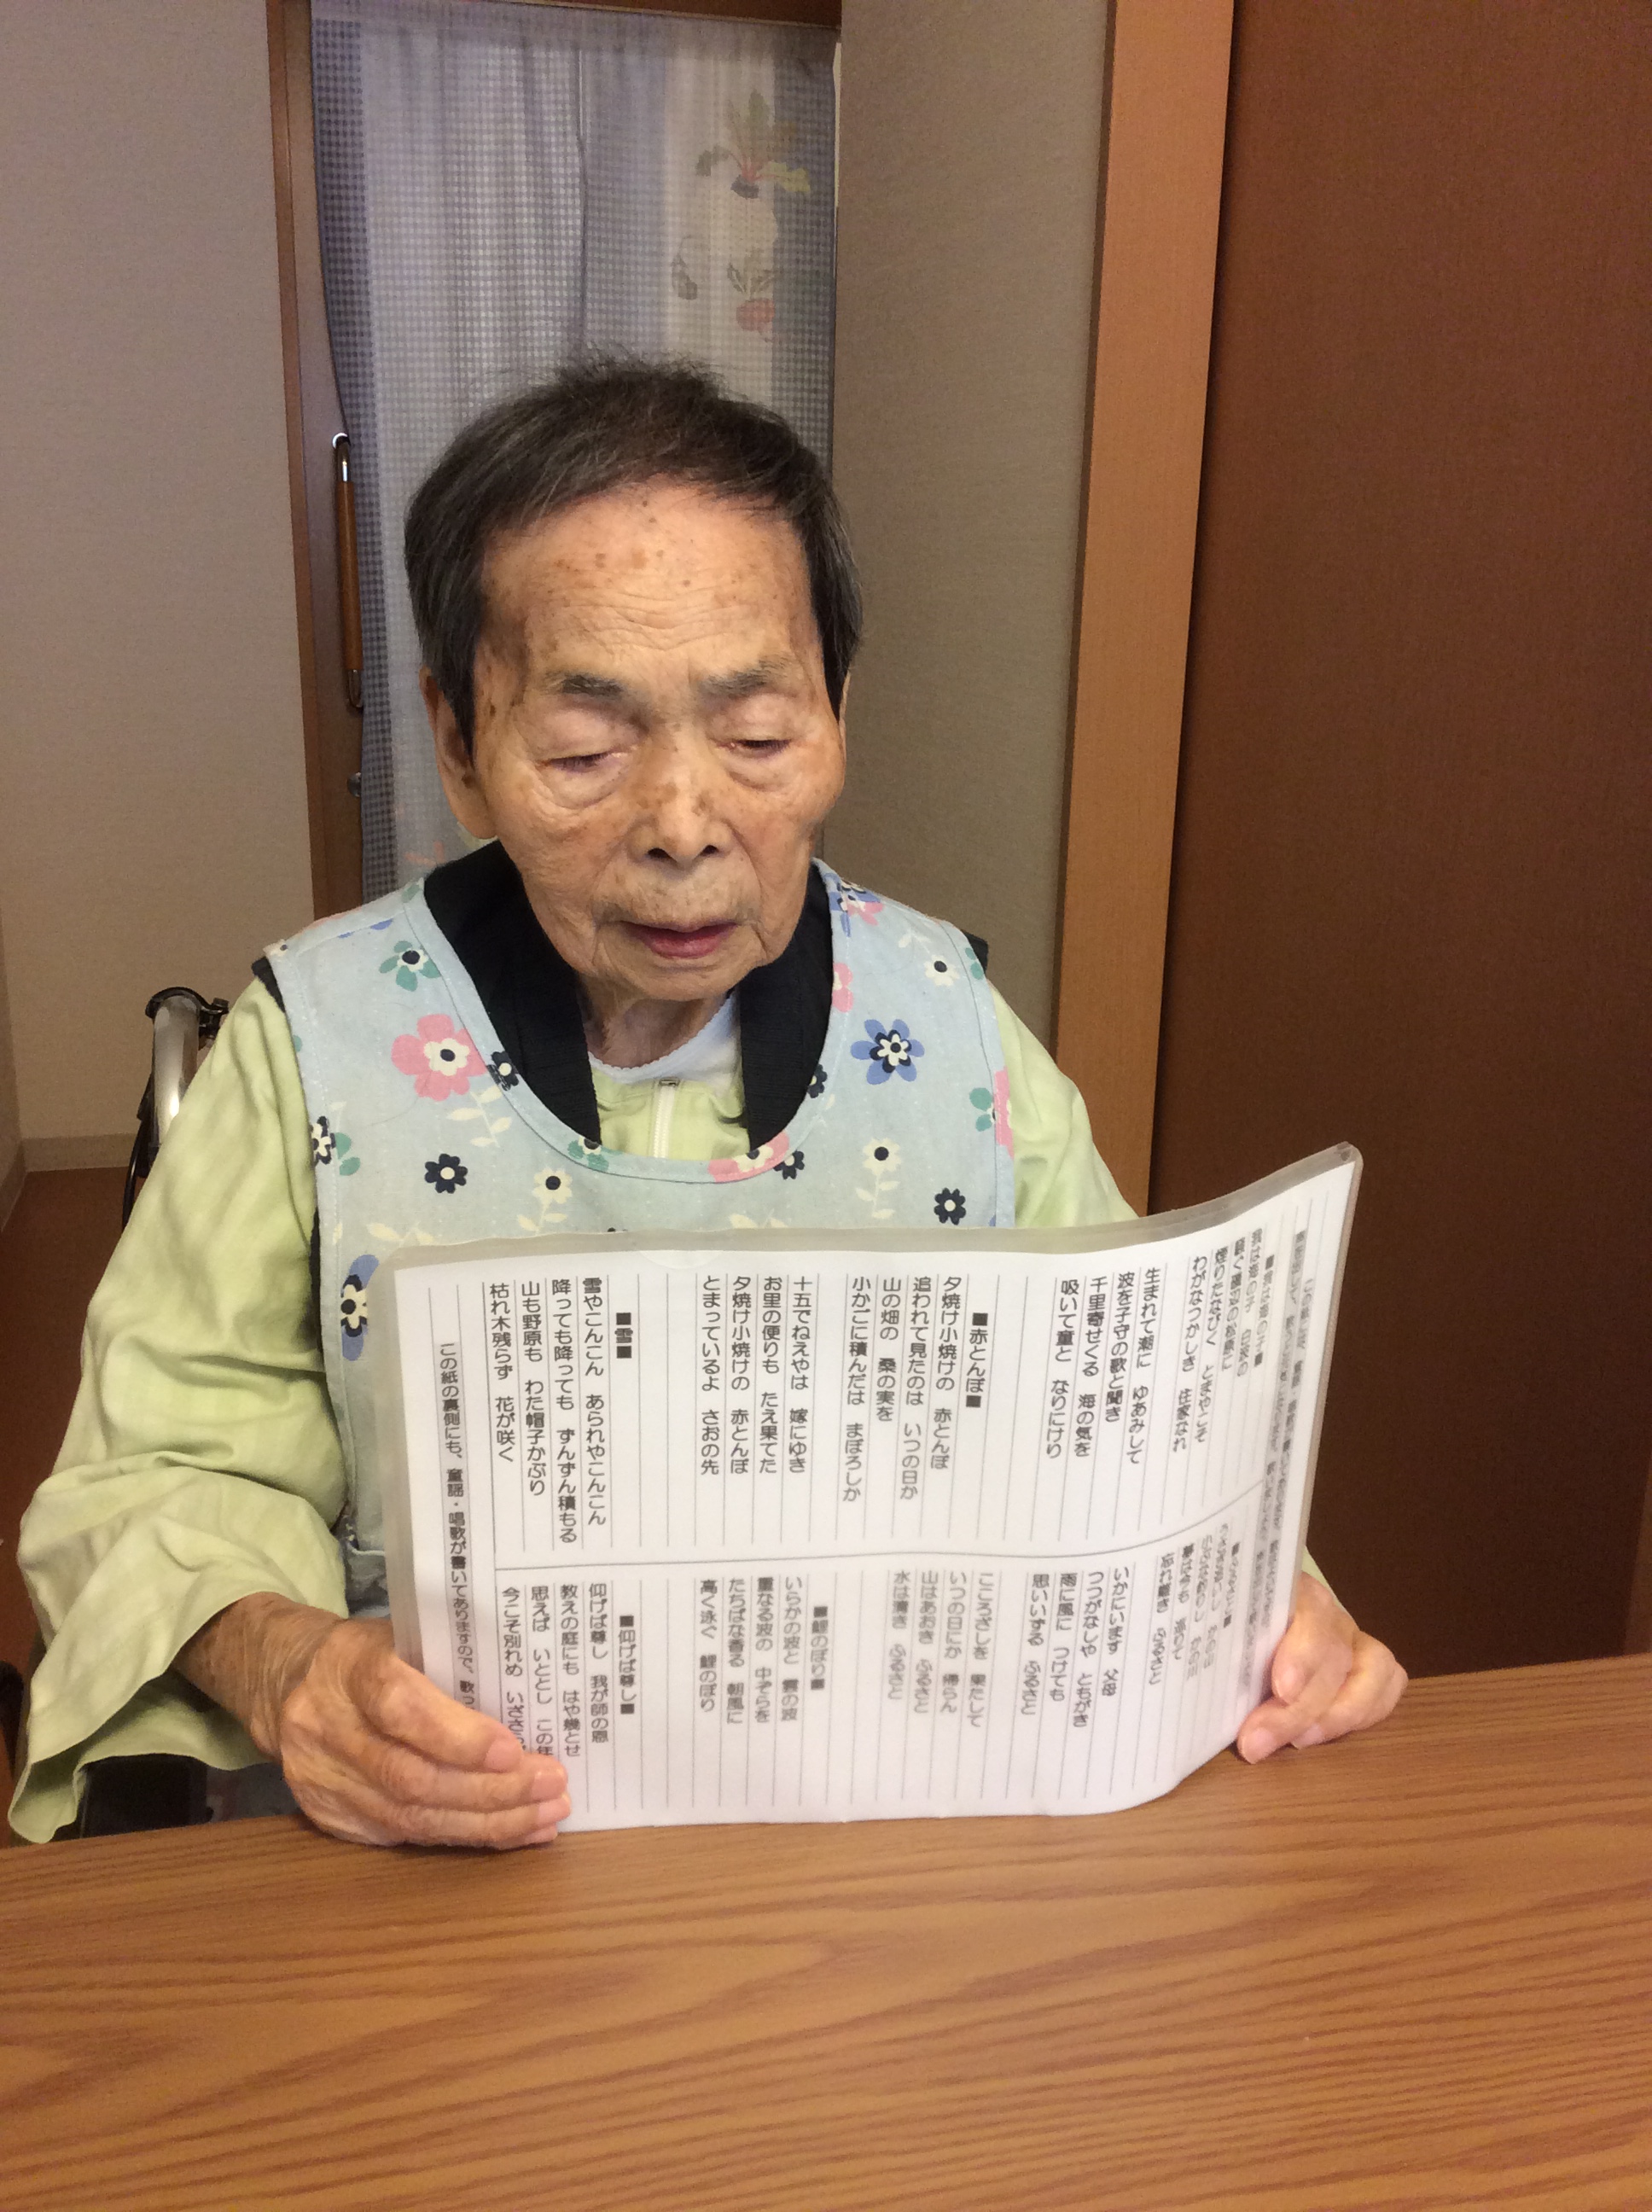 ■我は海の子■
我は海の子　白波の
煙りたなびく　とまやこそ
わがなつかしき　住家なれ
生まれて潮に　ゆあみして
波を子守の歌と聞き
千里寄せくる　海の気を
吸いて童と　なりにけり
■赤とんぼ■
夕焼け小焼けの　赤とんぼ
追われて見たのは　いつの日か
山の畑の　桑の実を
小かごに積んだは　まぼろしか
十五でねえやは　嫁にゆき
お里の便りも　たえ果てた
夕焼け小焼けの　赤とんぼ
とまっているよ　さおの先
■雪■
雪やこんこん　あられやこんこん
降っても降っても　ずんずん積もる
山も野原も　わた帽子かぶり
枯れ木残らず　花が咲く
夢は今も　巡りて
忘れ難き　ふるさと
いかにいます　父母
つつがなしや　ともがき
雨に風に　つけても
思いいずる　ふるさと
こころざしを　果たして
いつの日にか　帰らん
山はあおき　ふるさと
水は清き　ふるさと
■鯉のぼり■
いらかの波と　雲の波
重なる波の　中ぞらを
たちばな香る　朝風に
高く泳ぐ　鯉のぼり
■仰げば尊し■
仰げば尊し　我が師の恩
教えの庭にも　はや幾とせ
思えば　いととし　この年
今こそ別れめ　いざさら
この紙の裏側にも、童謡・唱歌が書いてありますので、歌っ